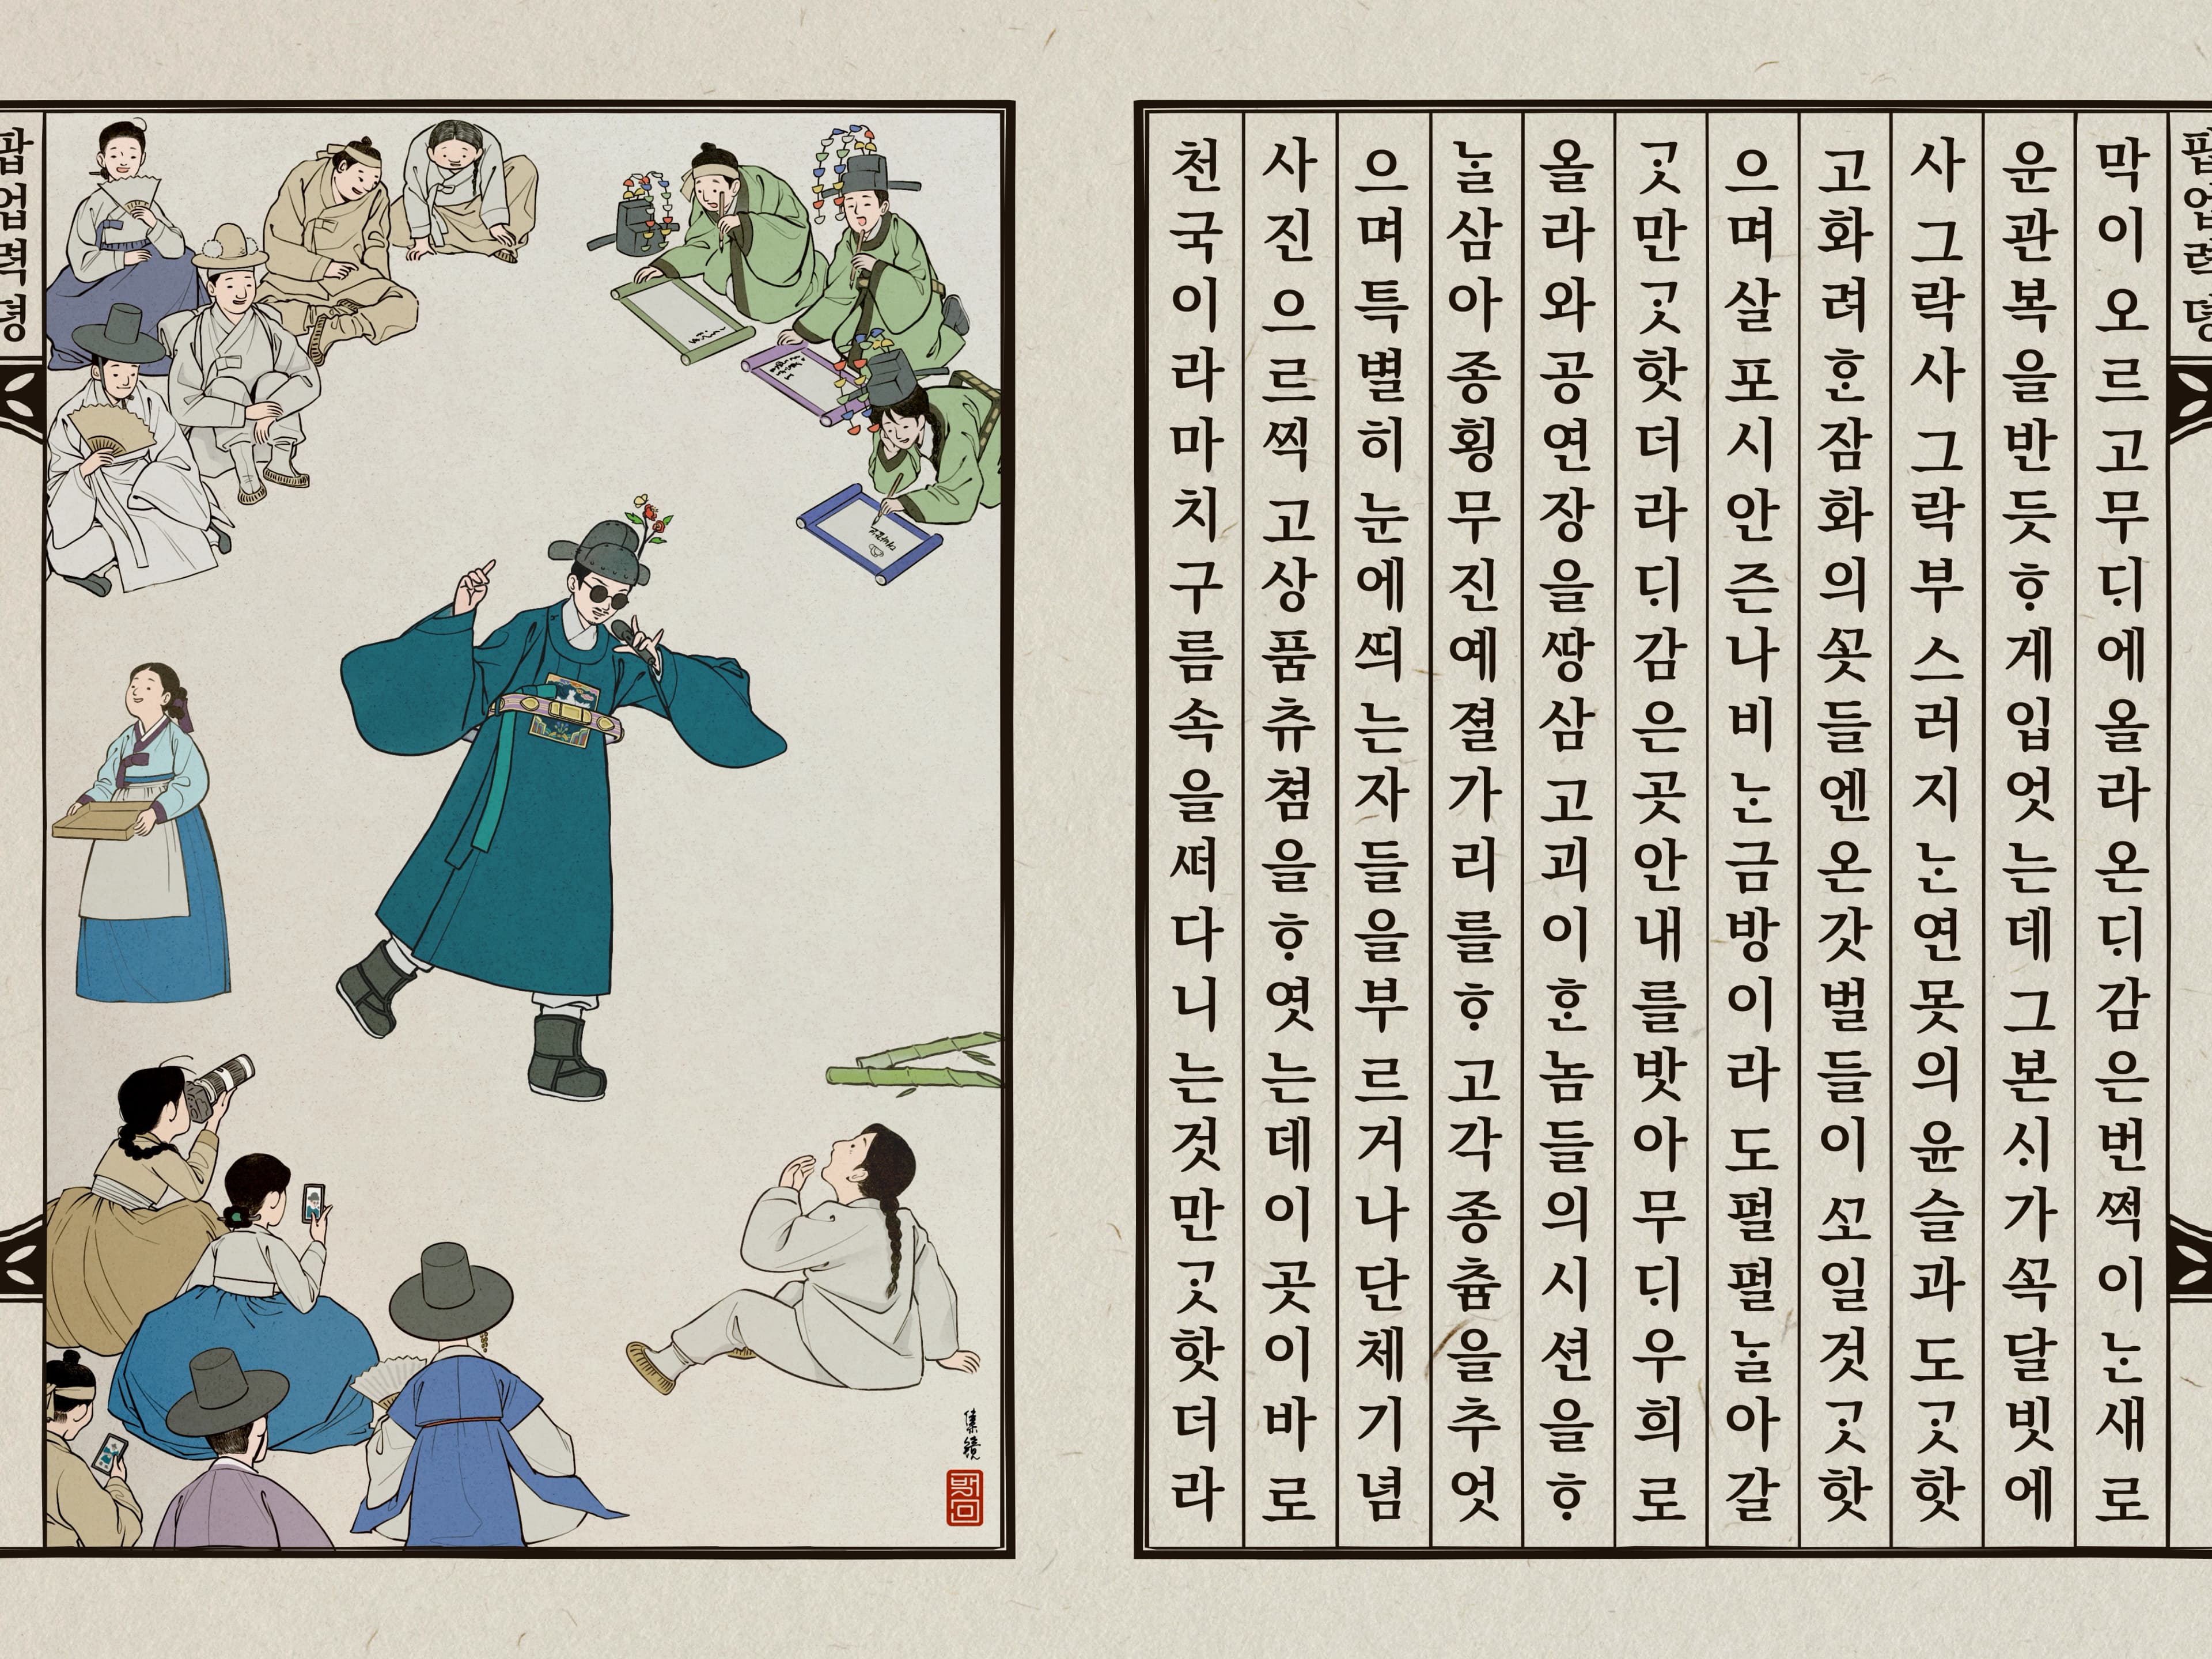 막이오르고무ᄃᆡ에올라온ᄃᆡ감은번쩍이ᄂᆞᆫ새로
운관복을반듯ᄒᆞ게입엇는데그본ᄉᆡ가ᄭᅩᆨ달빗에
사그락사그락부스러지ᄂᆞᆫ연못의윤슬과도ᄀᆞᆺ핫
고화려ᄒᆞᆫ잠화의ᄭᅩᆺ들엔온갓벌들이ᄭᅩ일것ᄀᆞᆺ핫
으며살포시안즌나비ᄂᆞᆫ금방이라도펄펄ᄂᆞᆯ아갈
ᄀᆞᆺ만ᄀᆞᆺ핫더라ᄃᆡ감은곳안내를밧아무ᄃᆡ우희로
올라와공연장을ᄯᅡᆼ삼고괴이ᄒᆞᆫ놈들의시션을ᄒᆞ
ᄂᆞᆯ삼아종횡무진예졀가리를ᄒᆞ고각종츔을추엇
으며특별히눈에ᄯᅴ는자들을부르거나단체기념
사진으르찍고상품츄쳠을ᄒᆞ엿는데이곳이바로
천국이라마치구름속을ᄯᅥ다니는것만ᄀᆞᆺ핫더라
팝업력뎡